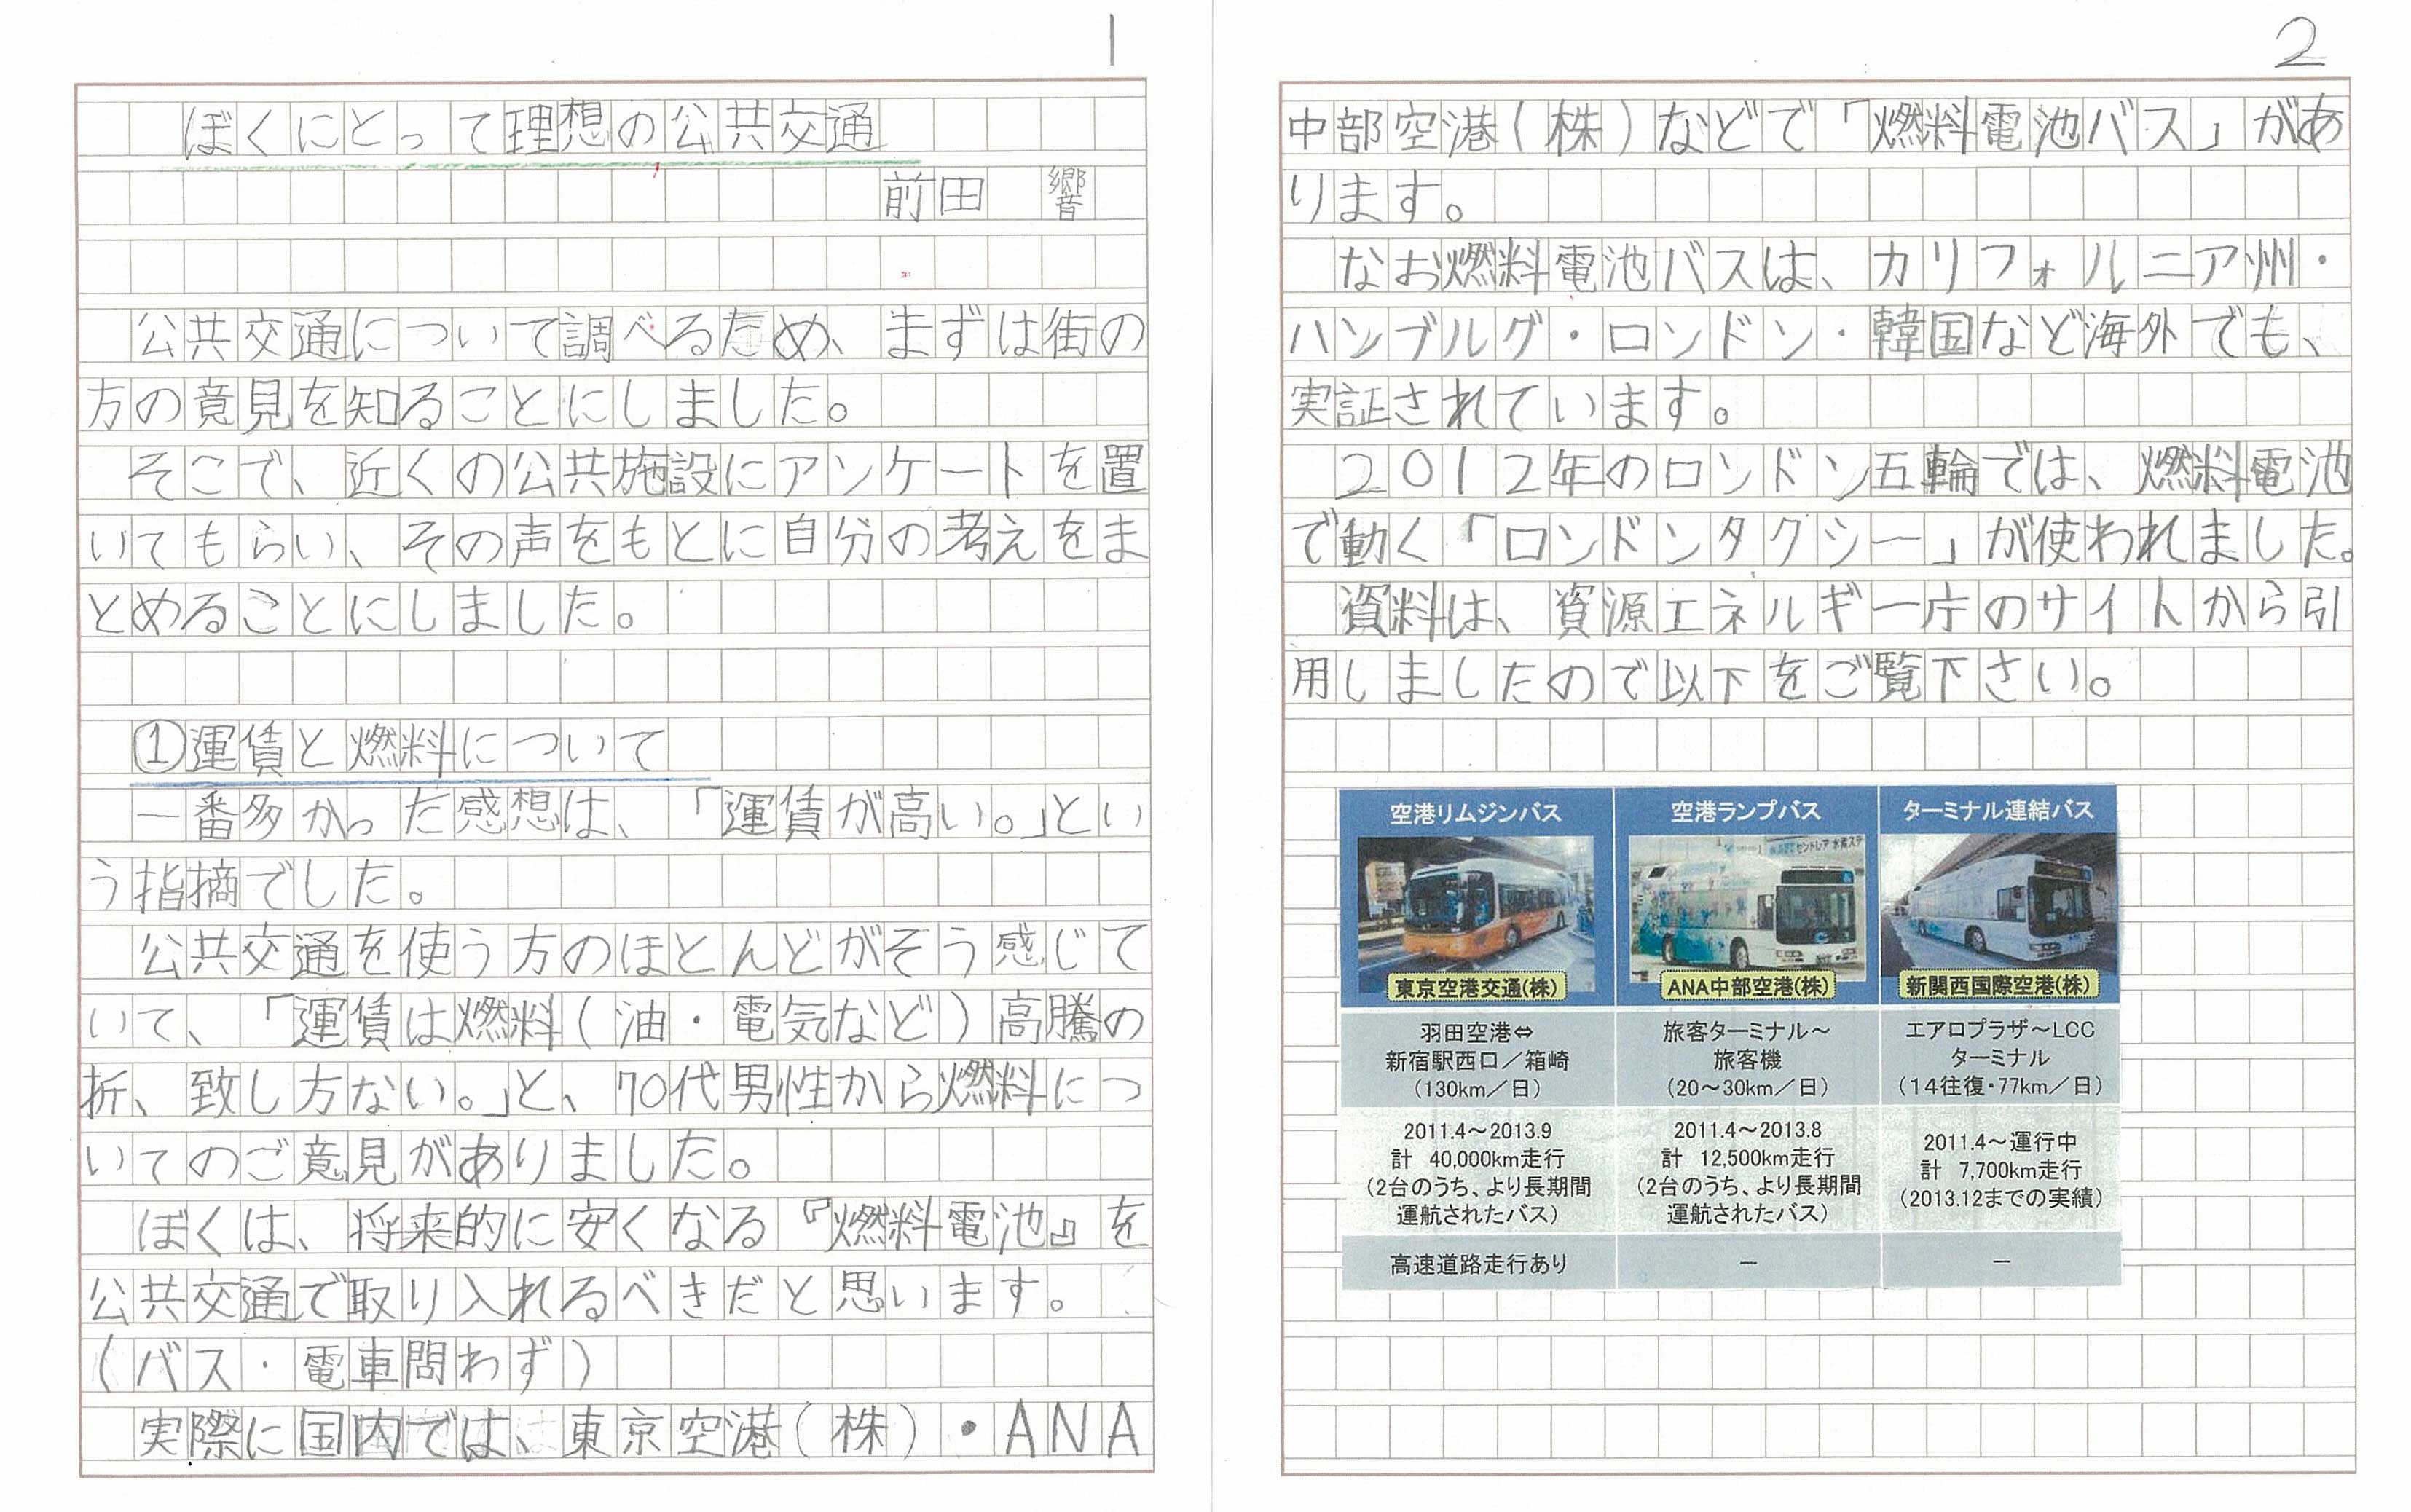 1
ぼくにとって理想の公共交通
前田 響
公共交通について調べるため、まずは街の
方の意見を知ることにしました。
そこで、近くの公共施設にアンケートを置
いてもらい、その声をもとに自分の考えをま
とめることにしました。
①運賃と燃料について
一番多かった感想は、「運賃が高い。」とい
う指摘でした。
公共交通を使う方のほとんどがそう感じて
いて、「運賃は燃料(油・電気など)高騰の
折、致し方ない。」と、70代男性から燃料につ
いてのご意見がありました。
ぼくは、将来的に安くなる『燃料電池』を
公共交通で取り入れるべきだと思います。
(バス・電車問わず)
実際に国内では、東京空港(株)・ANA
2
中部空港(株)などで「燃料電池バス」があ
ります。
なお燃料電池バスは、カリフォルニア州・
ハンブルグ・ロンドン・韓国など海外でも、
実証されています。
2012年のロンドン五輪では、燃料電池
で動く「ロンドンタクシー」が使われました。
資料は、資源エネルギー庁のサイトから引
用しましたので以下をご覧下さい。
空港リムジンバス 空港ランプバス ターミナル連結バス
東京空港交通(株) ANA中部空港(株) 新関西国際空港(株)
羽田空港⇔
新宿駅西口/箱崎
(130km/日)
旅客ターミナル〜
旅客機
(20〜30km/日)
エアロプラザ〜LCC
ターミナル
(14往復・77km/日)
2011.4〜2013.9
計 40,000km走行
(2台のうち、より長期間
運航されたバス)
2011.4〜2013.8
計 12,500km走行
(2台のうち、より長期間
運航されたバス)
2011.4〜運行中
計 7,700km走行
(2013.12までの実績)
高速道路走行あり － －